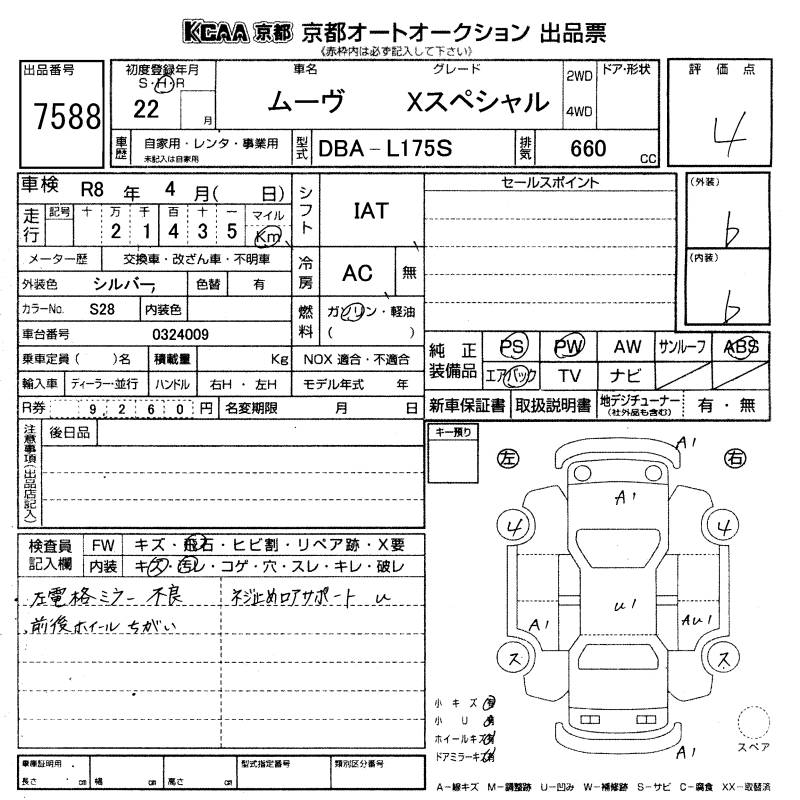 KCAA 京都 京都オートオークション 出品票
《赤枠内は必ず記入して下さい》
出品番号
7588
初度登録年月
S・H・R
22 月
車名 グレード
ムーヴ Xスペシャル
2WD
4WD
ドア・形状
評価点
4
車歴
自家用・レンタ・事業用
未記入は自家用
型式
DBA-L175S
排気
660 CC
車検 R8 年 4 月( 日)
走行
記号 十 万 千 百 十 一 マイル
2 1 4 3 5 Km
メーター歴 交換車・改ざん車・不明車
外装色 シルバー 色替 有
カラーNo. S28 内装色
車台番号 0324009
乗車定員( )名 積載量 Kg
輸入車 ディーラー・並行 ハンドル 右H・左H
R券 9,260円 名変期限 月 日
シフト
IAT
冷房
AC 無
燃料
ガソリン・軽油
( )
NOX 適合・不適合
モデル年式 年
セールスポイント
(外装)
b
(内装)
b
純正装備品
PS PW AW サンルーフ ABS
エアバック TV ナビ
新車保証書 取扱説明書 地デジチューナー
(社外品も含む)
有・無
注意事項(出品店記入)
後日品
キー預り
検査員記入欄
FW キズ・飛石・ヒビ割・リペア跡・X要
内装 キズ・汚レ・コゲ・穴・スレ・キレ・破レ
左電格ミラー 不良 ネジ止めロアサポート u
前後ホイール ちがい
左 右
A1
A1
4 4
u1
A1 Au1
ス ス
A1
小キズ
小U
ホイールキズ
ドアミラーキズ
スペア
車庫証明用
長さ cm 幅 cm 高さ cm
型式指定番号
類別区分番号
A-線キズ M-調整跡 U-凹み W-補修跡 S-サビ C-腐食 XX-取替済